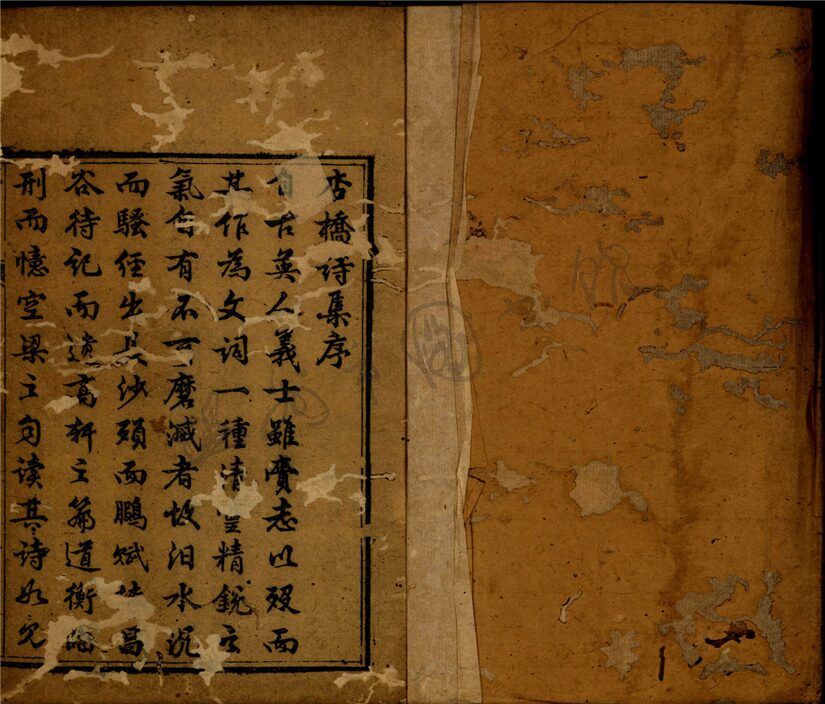 杏橋詩集序
自古英人義士雖賫志以歿而
其作為文詞一種清精銳之
氣有不可磨滅者故汨水沉
而騷經出長沙頹而鵬賦昌
谷待記而遺高軒之篇道衡臨
刑而憶空梁之句讀其詩如見